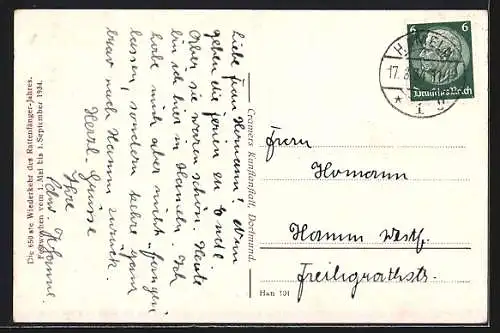 Die 650ste Wiederkehr des Rattenfänger-Jahres.
Festwochen vom 1. Mai bis 1. September 1934.
Liebe Frau Homann! Nun
gehen die ferien zu Ende.
Aber sie waren schön. Heute
bin ich hier in Hameln. Ich
habe mich aber nicht fangen
lassen, sondern kehre ganz
brav nach Hamm zurück.
Herzl. Grüsse
Ihre
Cramers Kunstanstalt, Dortmund.
Han 101
6 6
Deutsches Reich
17.8.
Homann
Hamm Westf.
Freiligrathstr.